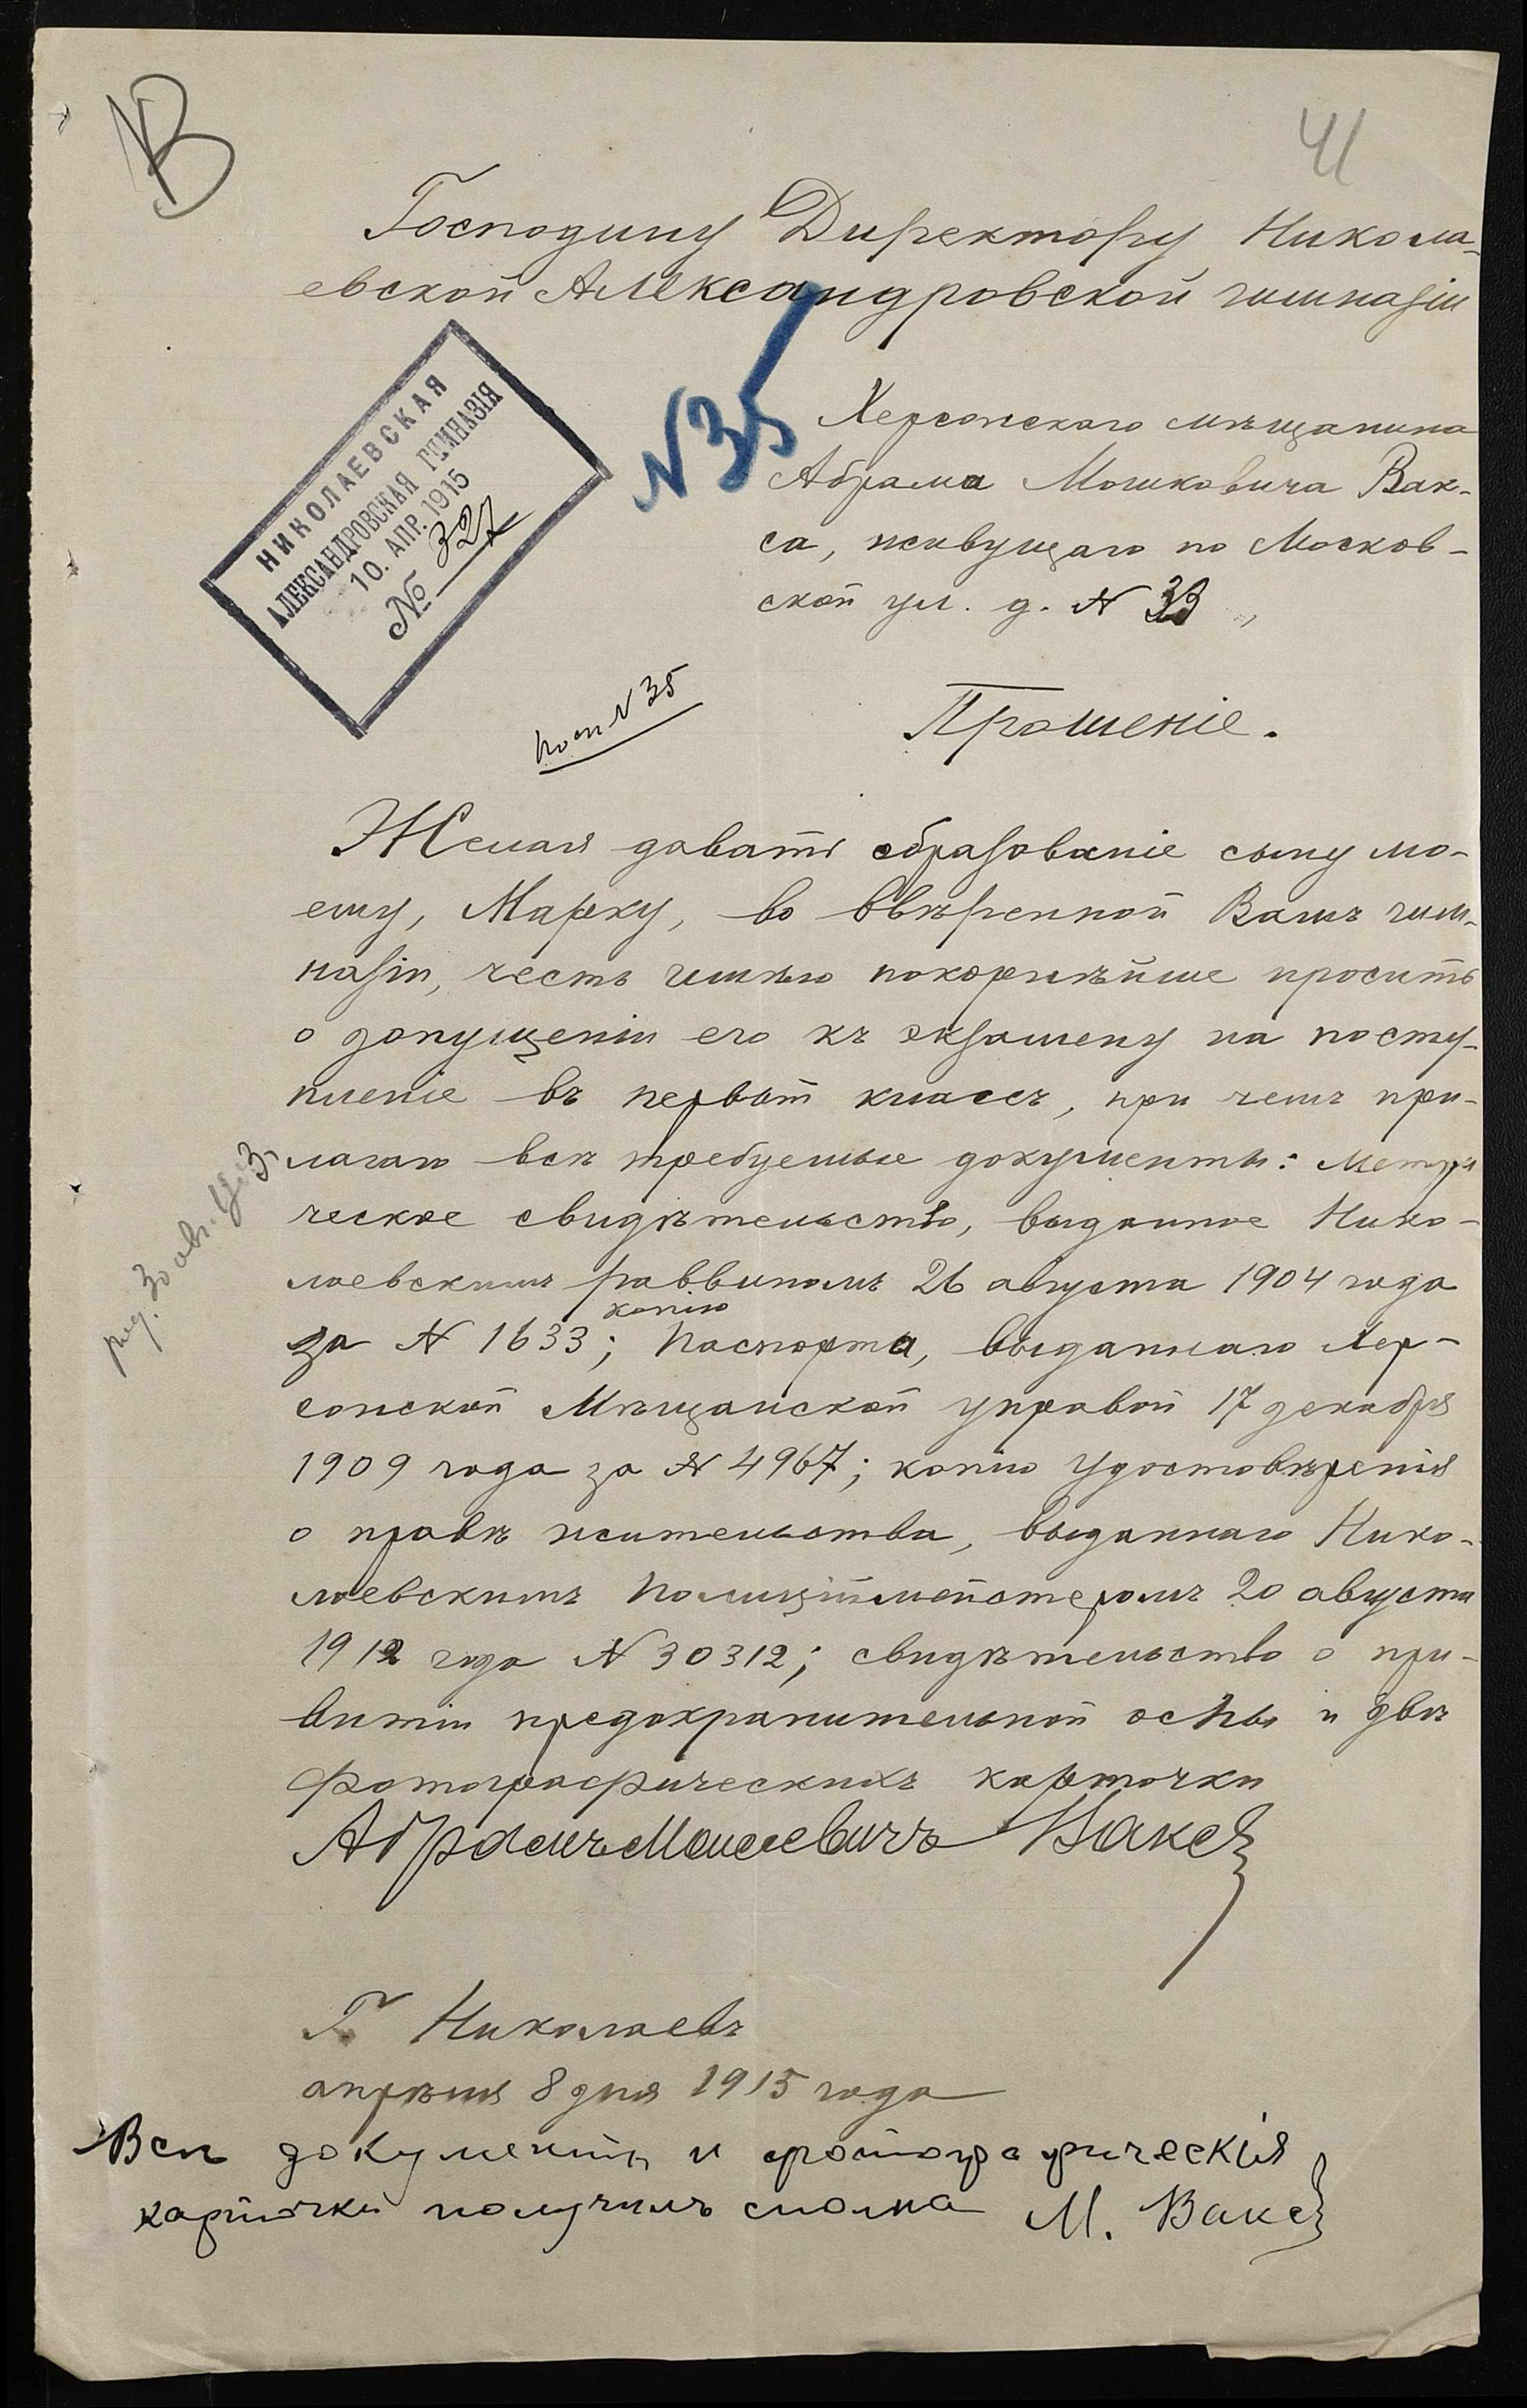 В
41
Господину Директору Никола-
евской Александровской гимназіи
НИКОЛАЕВСКАЯ
АЛЕКСАНДРОВСКАЯ ГИМНАЗІЯ
10. АПР. 1915
№ 327
N 35
Херсонскаго мѣщанина
Абрама Мошковича Вак-
са, живущаго по Москов-
ской ул. д. N 33,
N 35
Прошеніе.
Желая давать образованіе сыну мо-
ему, Марку, во ввѣренной Вамъ гим-
назіи, честь имѣю покорнѣйше просить
о допущеніи его къ экзамену на посту-
пленіе въ первый классъ, при чемъ при-
лагаю всѣ требуемые документы: Метри
ческое свидѣтельство, выданное Нико-
лаевскимъ раввиномъ 26 августа 1904 года
копію
за N 1633; Паспорта, выданнаго Хер-
сонской Мѣщанской управой 17 декабря
1909 года за N 4967; копію Удостовѣренія
о правѣ жительства, выданнаго Нико-
лаевскимъ Полиціймейстеромъ 20 августа
1912 года N 30312; свидѣтельство о при-
витіи предохранительной оспы и двѣ
фотографическихъ карточки
Абрамъ Мошковичъ Ваксъ
Г. Николаевъ
апрѣля 8 дня 1915 года
Всѣ документы и фотографическія
карточки получилъ сполна М. Ваксъ